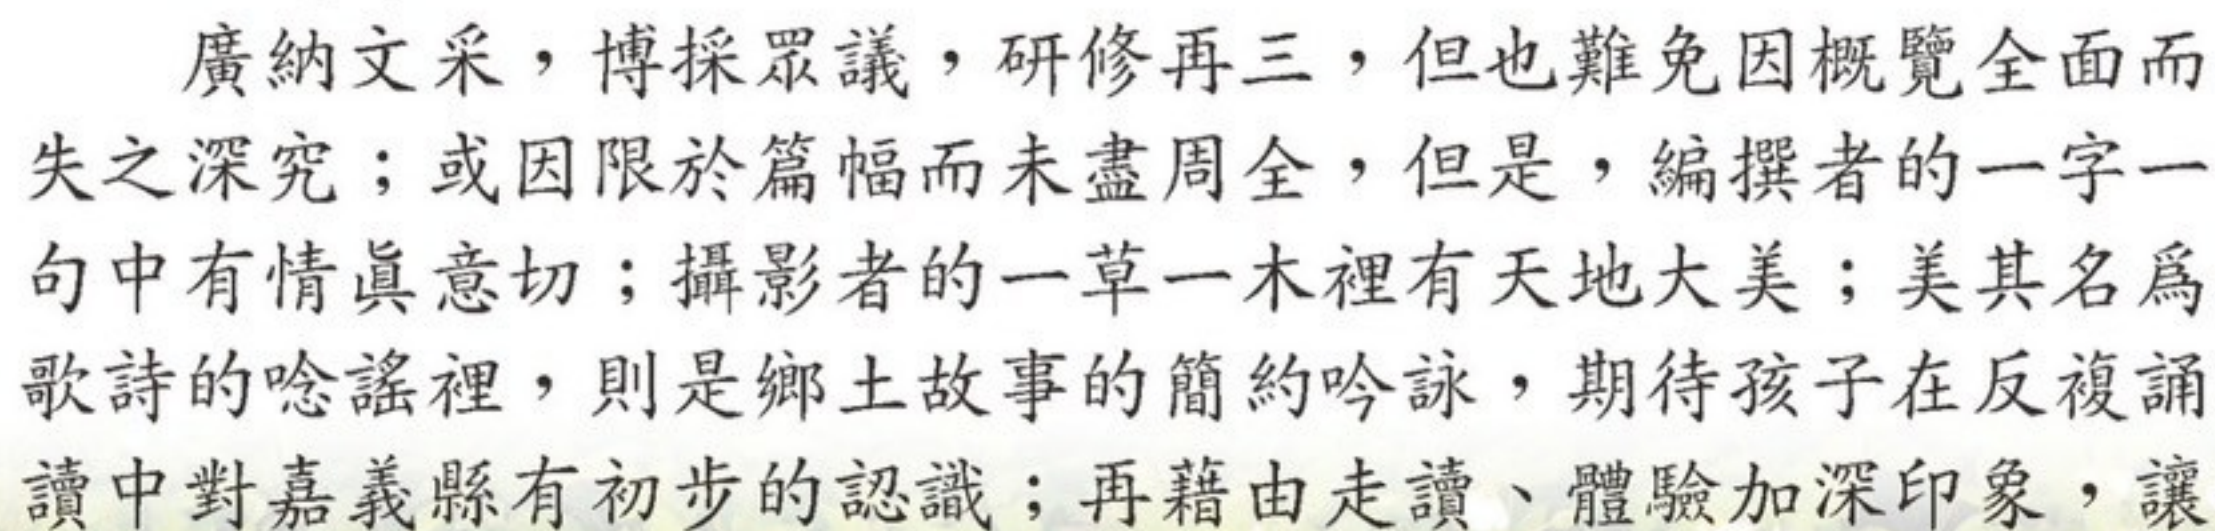 廣納文采，博採眾議，研修再三，但也難免因概覽全面而
失之深究；或因限於篇幅而未盡周全，但是，編撰者的一字一
句中有情眞意切；攝影者的一草一木裡有天地大美；美其名爲
歌詩的唸謠裡，則是鄉土故事的簡約吟詠，期待孩子在反複誦
讀中對嘉義縣有初步的認識；再藉由走讀、體驗加深印象，讓